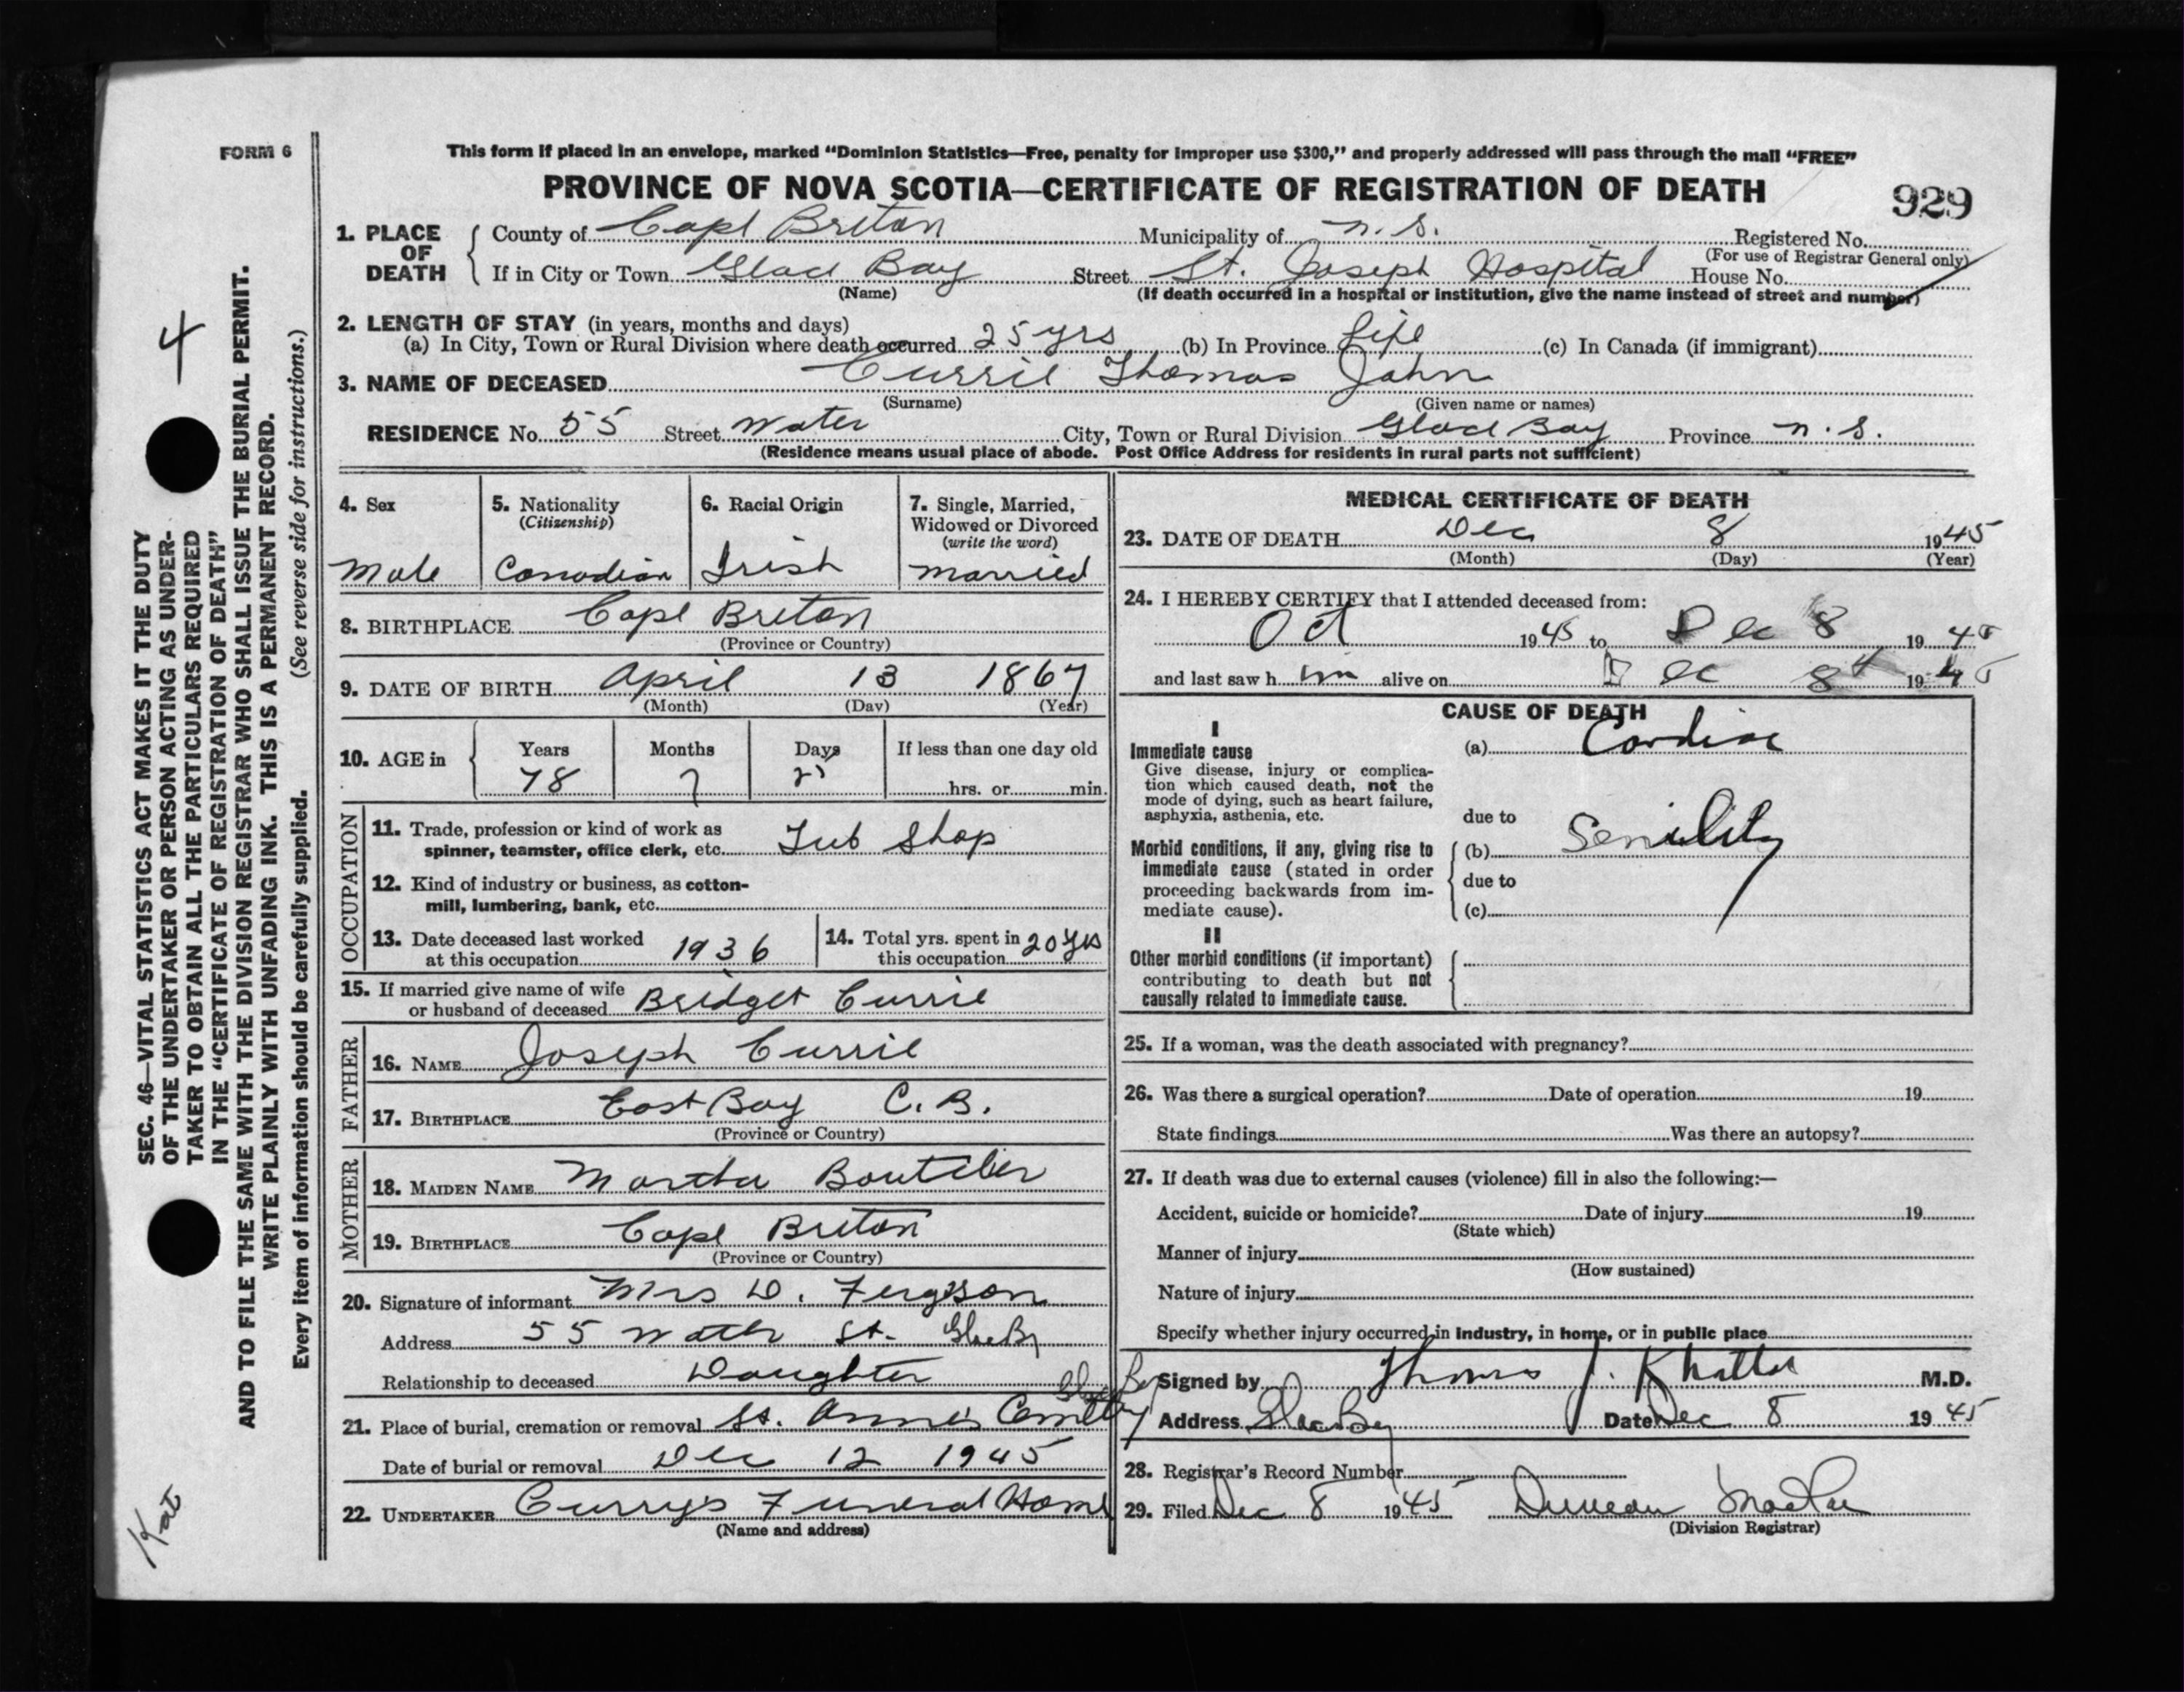 FORM 6
This form if placed in an envelope, marked “Dominion Statistics—Free, penalty for improper use $300,” and properly addressed will pass through the mail “FREE”
PROVINCE OF NOVA SCOTIA—CERTIFICATE OF REGISTRATION OF DEATH 929
1. PLACE OF DEATH County of Cape Breton Municipality of N. S. Registered No.
(For use of Registrar General only)
If in City or Town Glace Bay Street St. Joseph Hospital House No.
(Name) (If death occurred in a hospital or institution, give the name instead of street and number)
2. LENGTH OF STAY (in years, months and days)
(a) In City, Town or Rural Division where death occurred 25 yrs (b) In Province Life (c) In Canada (if immigrant)
3. NAME OF DECEASED Currie Thomas John
(Surname) (Given name or names)
RESIDENCE No. 55 Street Water City, Town or Rural Division Glace Bay Province N. S.
(Residence means usual place of abode. Post Office Address for residents in rural parts not sufficient)
4. Sex 5. Nationality (Citizenship) 6. Racial Origin 7. Single, Married, Widowed or Divorced (write the word)
Male Canadian Irish Married
8. BIRTHPLACE Cape Breton
(Province or Country)
9. DATE OF BIRTH April 13 1867
(Month) (Day) (Year)
10. AGE in Years Months Days If less than one day old
78 7 25 hrs. or min.
OCCUPATION
11. Trade, profession or kind of work as
spinner, teamster, office clerk, etc. Tub Shop
12. Kind of industry or business, as cotton-
mill, lumbering, bank, etc.
13. Date deceased last worked
at this occupation 1936
14. Total yrs. spent in
this occupation 20 yrs
15. If married give name of wife
or husband of deceased Bridget Currie
FATHER
16. NAME Joseph Currie
17. BIRTHPLACE East Bay C. B.
(Province or Country)
MOTHER
18. MAIDEN NAME Martha Boutilier
19. BIRTHPLACE Cape Breton
(Province or Country)
20. Signature of informant Mrs D. Ferguson
Address 55 Water St. Glace By
Relationship to deceased Daughter
Glace Bay
21. Place of burial, cremation or removal St. Anne's Cemetery
Date of burial or removal Dec 12 1945
22. UNDERTAKER Curry's Funeral Home
(Name and address)
MEDICAL CERTIFICATE OF DEATH
23. DATE OF DEATH Dec 8 1945
(Month) (Day) (Year)
24. I HEREBY CERTIFY that I attended deceased from:
Oct 1945 to Dec 8 1945
and last saw h im alive on Dec 8th 1945
CAUSE OF DEATH
I
Immediate cause (a) Cardiac
Give disease, injury or complica-
tion which caused death, not the
mode of dying, such as heart failure,
asphyxia, asthenia, etc. due to
Morbid conditions, if any, giving rise to (b) Senility
immediate cause (stated in order
proceeding backwards from im- due to
mediate cause). (c)
II
Other morbid conditions (if important)
contributing to death but not
causally related to immediate cause.
25. If a woman, was the death associated with pregnancy?
26. Was there a surgical operation? Date of operation 19
State findings Was there an autopsy?
27. If death was due to external causes (violence) fill in also the following:—
Accident, suicide or homicide? Date of injury 19
(State which)
Manner of injury
(How sustained)
Nature of injury
Specify whether injury occurred in industry, in home, or in public place
Signed by Thomas J. Khattar M.D.
Address Glace Bay Date Dec 8 1945
28. Registrar's Record Number
29. Filed Dec 8 1945 Duncan MacRae
(Division Registrar)
4
SEC. 46—VITAL STATISTICS ACT MAKES IT THE DUTY
OF THE UNDERTAKER OR PERSON ACTING AS UNDER-
TAKER TO OBTAIN ALL THE PARTICULARS REQUIRED
IN THE “CERTIFICATE OF REGISTRATION OF DEATH”
AND TO FILE THE SAME WITH THE DIVISION REGISTRAR WHO SHALL ISSUE THE BURIAL PERMIT.
WRITE PLAINLY WITH UNFADING INK. THIS IS A PERMANENT RECORD.
Every item of information should be carefully supplied. (See reverse side for instructions.)